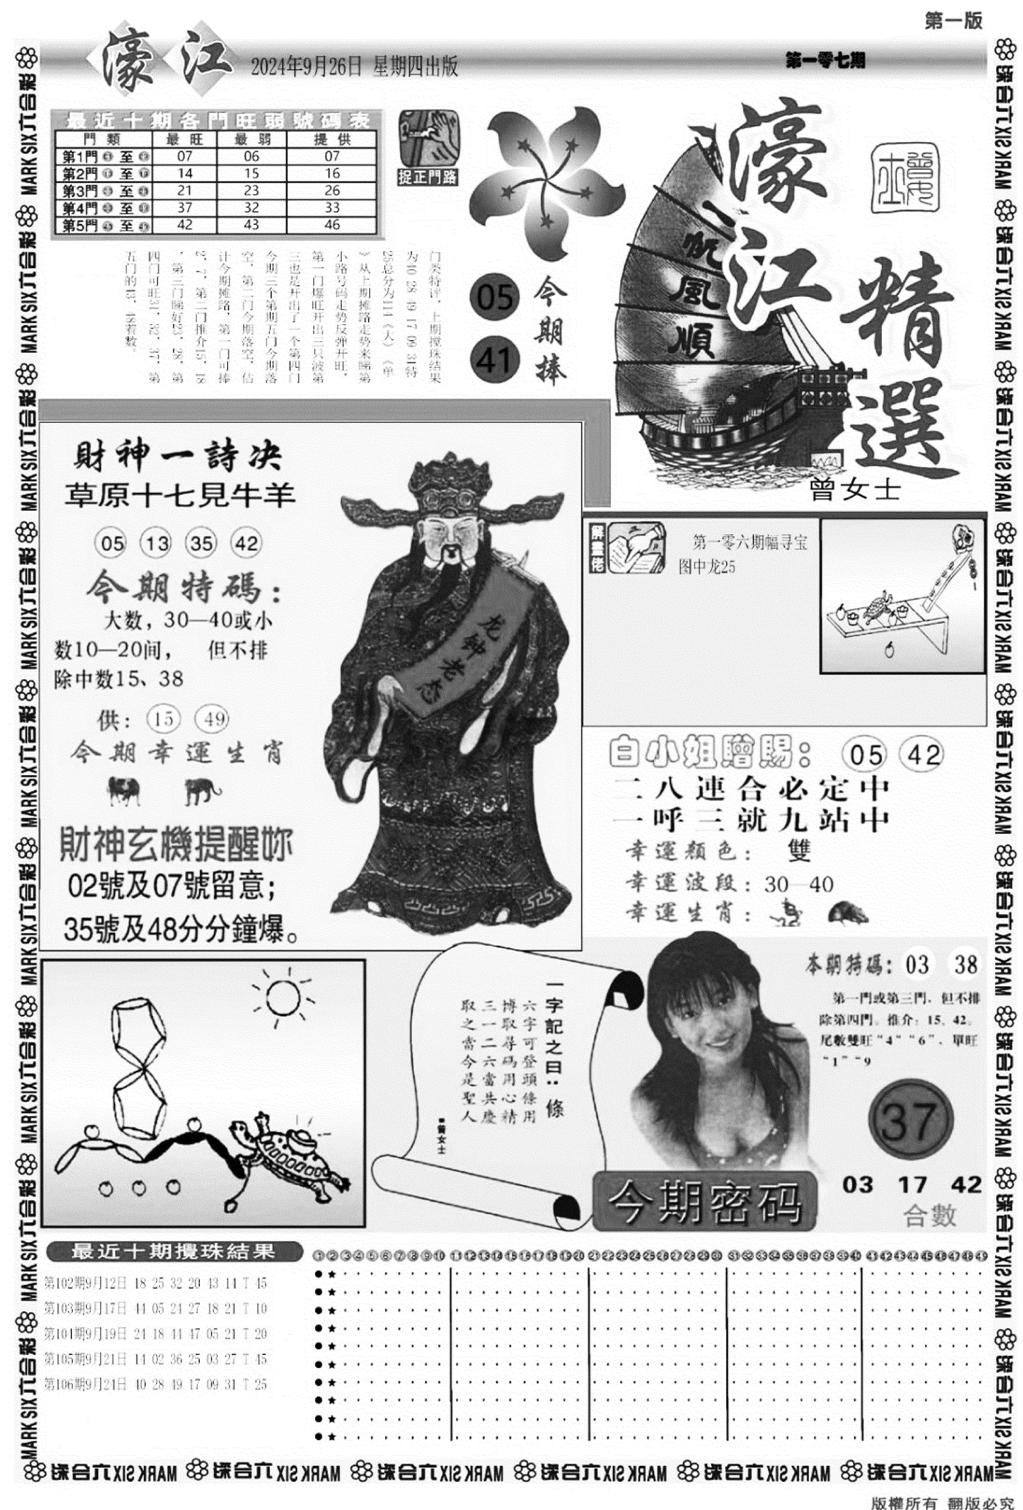 第一版
濠江 2024年9月26日 星期四出版
第一零七期
最近十期各門旺弱號碼表
門類 最旺 最弱 提供
第1門 至 07 06 07
第2門 至 14 15 16
第3門 至 21 23 26
第4門 至 37 32 33
第5門 至 42 43 46
捉正門路
门类特评，上期搅珠结果
小路号码走势反弹开旺，
第一门爆旺开出三只波第
三也是开出了一个第四门
今期三个第期五门今期落
05
41
今期捧
一帆風順
濠江
精選
曾女士
財神一詩决
草原十七見牛羊
05 13 35 42
今期特碼：
大数，30—40或小
数10—20间， 但不排
除中数15、38
供：15 49
今期幸運生肖
財神玄機提醒妳
02號及07號留意；
35號及48分分鐘爆。
龙钟老态
第一零六期幅寻宝
图中龙25
白小姐贈賜：05 42
二八連合必定中
一呼三就九站中
幸運顏色： 雙
幸運波段：30—40
幸運生肖：
一字記之曰：條
六字可登頭條用
博取尋碼用心精
三一二六當共慶
取之當今是聖人
■曾女士
本期特碼：03 38
第一門或第三門，但不排
除第四門。推介：15、42。
尾數雙旺“4”“6”、單旺
“1”“9
37
今期密码
03 17 42
合數
最近十期攪珠結果
①②③④⑤⑥⑦⑧⑨⑩⑪⑫⑬⑭⑮⑯⑰⑱⑲⑳㉑㉒㉓㉔㉕㉖㉗㉘㉙㉚㉛㉜㉝㉞㉟㊱㊲㊳㊴㊵㊶㊷㊸㊹㊺㊻㊼㊽㊾
第102期9月12日 18 25 32 20 43 11 T 45
第103期9月17日 44 05 24 27 18 21 T 10
第101期9月19日 24 18 44 47 05 21 T 20
第105期9月21日 14 02 36 25 03 27 T 45
第106期9月24日 40 28 49 17 09 31 T 25
MARK SIX 六合彩
版權所有 翻版必究